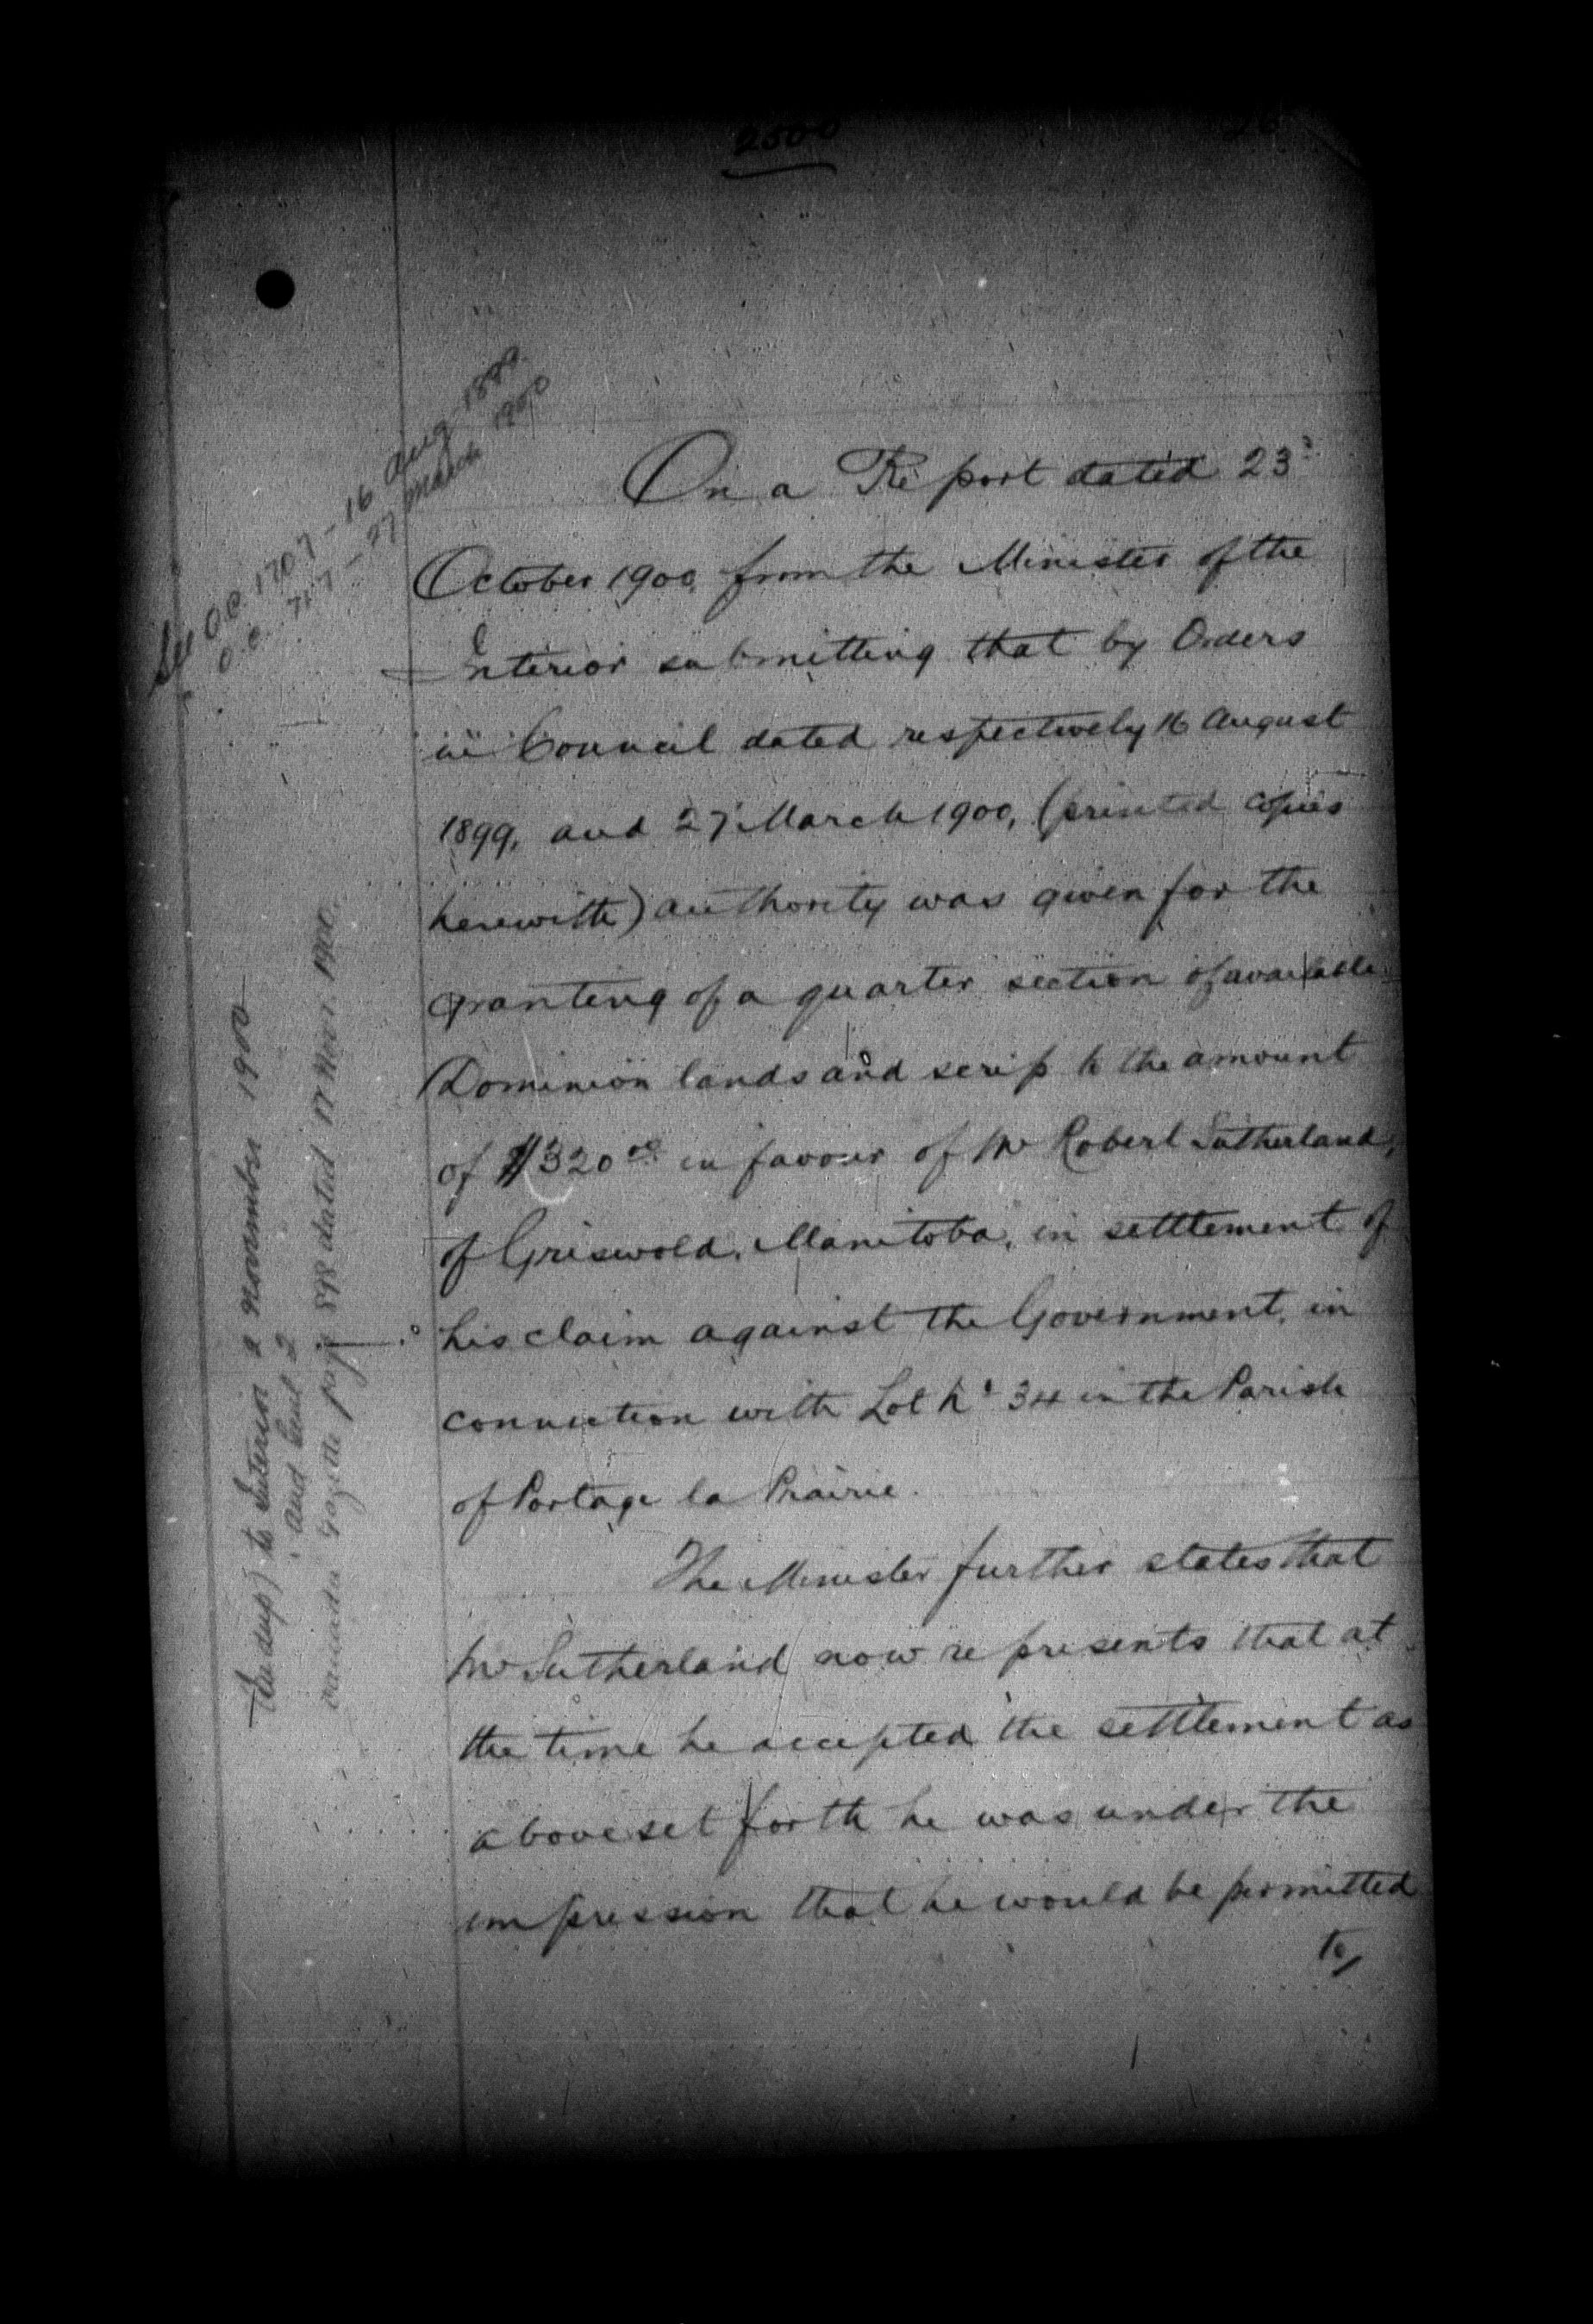 2500
26
See O.C. 1707 - 16 Aug - 1899
O.C. 717 - 27 March 1900
On a Report dated 23d
October 1900, from the Minister of the
Interior submitting that by Orders
in Council dated respectively 16 August
1899, and 27 March 1900, (printed copies
herewith) authority was given for the
granting of a quarter section of available
Dominion lands and scrip to the amount
of $320.00 in favour of Mr Robert Sutherland,
of Griswold, Manitoba, in settlement of
his claim against the Government, in
connection with Lot No 34 in the Parish
of Portage la Prairie.
The Minister further states that
Mr Sutherland now represents that at
the time he accepted the settlement as
above set forth he was under the
impression that he would be permitted
to/
to Interior 2 November 1900
and encl 2
Canada Gazette page 898 dated 17 Nov. 1900.